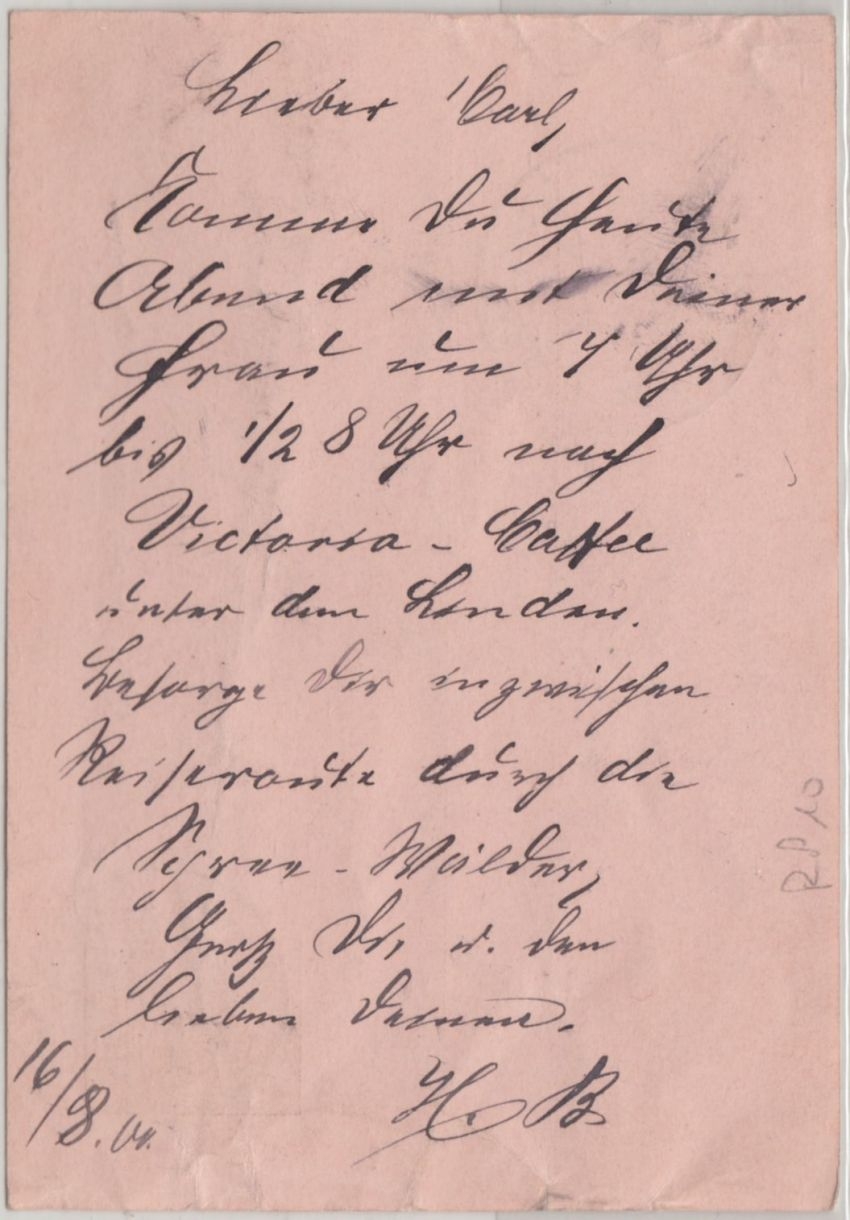 Lieber Carl,
Komme Du heute
Abend mit Deiner
Frau um 7 Uhr
bis 1/2 8 Uhr nach
Victoria - Caffee
unter den Linden.
Besorge Dir inzwischen
Reiseroute durch die
Spree - Wälder,
Dir, u. den
lieben Deinen.
H. B
16/8. 00.
RP 10